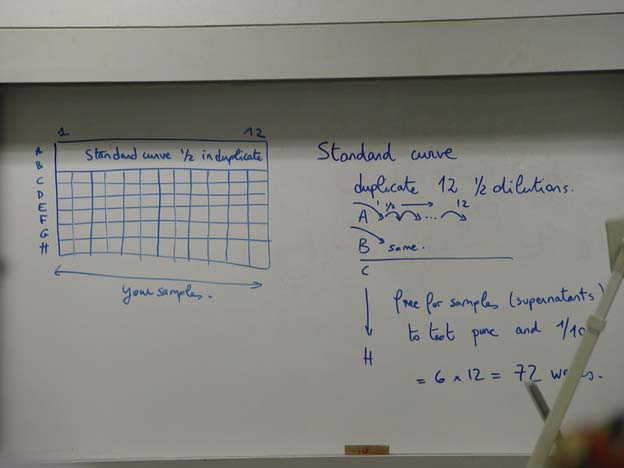 1 12
A Standard curve 1/2 in duplicate
B
C
D
E
F
G
H
Your samples.
Standard curve
duplicate 12 1/2 dilutions.
1 1/2 12
A ...
B same.
C
free for samples (supernatants)
to test pure and 1/10
H
= 6 x 12 = 72